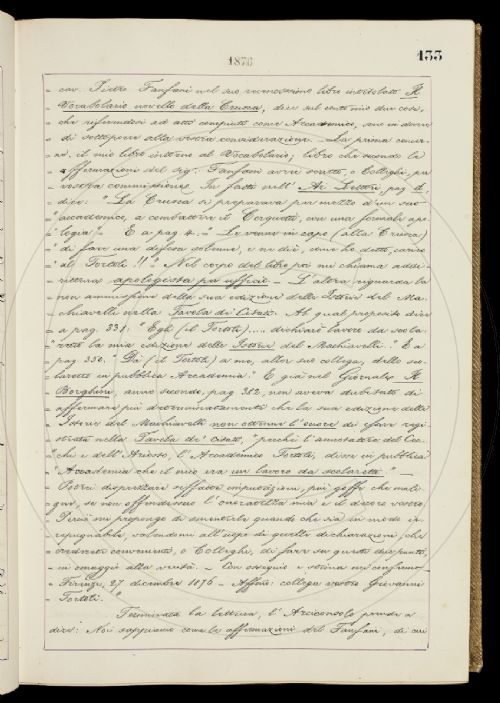 133
1876
" cav. Pietro Fanfani nel suo recentissimo libro intitolato Il
" Vocabolario novello della Crusca, dice sul conto mio due cose,
" che riferendosi ad atti compiuti come Accademico, amo in dovere
" di sottoporre alla vostra considerazione. — La prima concer-
" ne il mio libro intorno al Vocabolario; libro che secondo le
" affermazioni del sig. Fanfani avrei scritto, o Colleghi, per
" vostra commissione. In fatti nell' Ai Lettori, pag.
" dice: " La Crusca si preparava per mezzo d'un suo
" accademico, a combattere il Cerquetti, con una formale apo-
" logia „ E a pag. 4. = Le venne in capo (alla Crusca)
" di fare una difesa solenne, e ne diè, come ho detto, carico
" al Tortoli!! „ Nel corpo del libro poi mi chiama addi-
" rittura apologista per ufficio — L'altra riguarda la
" non ammissione della sua edizione delle Istorie del Ma-
" chiavelli nella Tavola de' Citati. Al qual proposito dice
" a pag. 331: " Egli (il Tortoli).... dichiarò lavoro da scola-
" retto la mia edizione delle Istorie del Machiavelli. " E a
" pag. 350: " Dà (il Tortoli) a me, allor suo collega, dello sco-
" laretto in pubblica Accademia. " E già nel Giornale Il
" Borghini, anno secondo, pag. 382, non aveva dubitato di
" affermare più determinatamente che la sua edizione delle
" Istorie del Machiavelli non ottenne l'onore di esser regi-
" strata nella Tavola de' citati, " perchè l'annotatore del Cec-
" chi e dell'Ariosto, l'Accademico Tortoli, disse in pubblica
" Accademia che il mio era un lavoro da scolaretto. " —
" Potrei disprezzare siffatte imputazioni, più goffe che mali-
" gne, se non offendessero l'onoratezza mia e il decoro vostro.
" Perciò mi propongo di smentirle quando che sia in modo ir-
" repugnabile, valendomi all'uopo di quelle dichiarazioni, che
" crederete convenienti, o Colleghi, di fare su questi due punti,
" in omaggio alla verità. — Con ossequio e stima mi confermo —
" Firenze, 27 dicembre 1876 — Affmo: collega vostro Giovanni
" Tortoli. "
Terminata la lettura, l'Arciconsolo prende a
dire: Noi sappiamo come le affermazioni del Fanfani, di cui